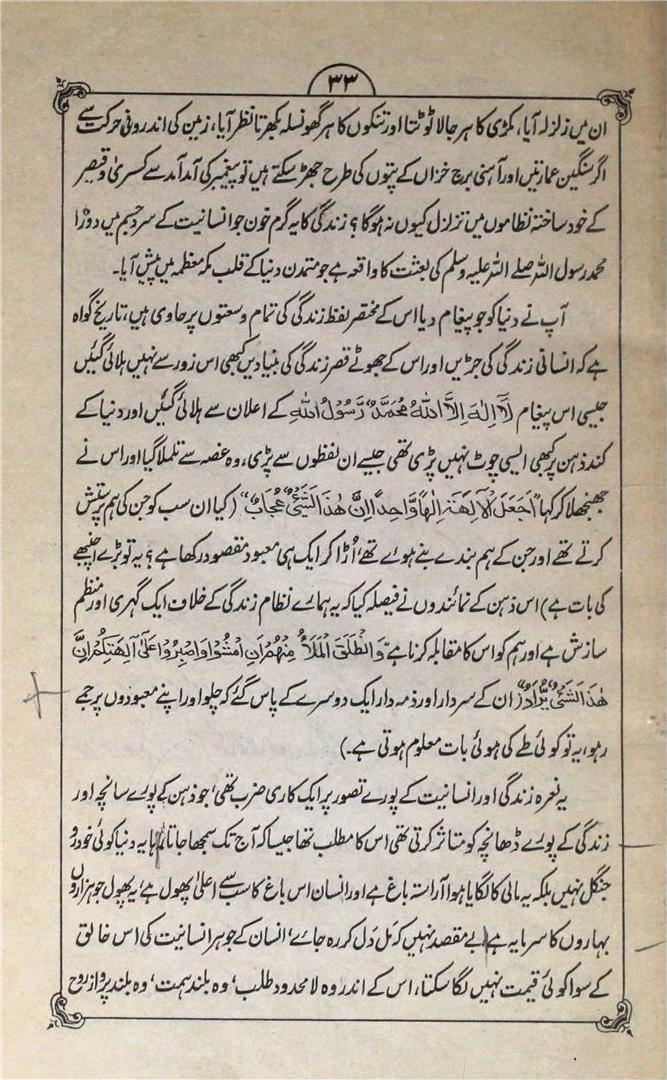 ۳۳
ان میں زلزلہ آیا، مکڑی کا ہر جالا ٹوٹتا اور تنکوں کا ہر گھونسلہ بکھرتا نظر آیا، زمین کی اندرونی حرکت سے
اگر سنگین عمارتیں اور آہنی برج خزاں کے پتوں کی طرح جھڑ سکتے ہیں تو پیغمبر کی آمد آمد سے کسریٰ و قیصر
کے خود ساختہ نظاموں میں تزلزل کیوں نہ ہوگا؟ زندگی کا یہ گرم خون جو انسانیت کے سرد جسم میں دوڑا
محمد رسول اللہ صلے اللہ علیہ وسلم کی بعثت کا واقعہ ہے جو متمدن دنیا کے قلب مکہ معظمہ میں پیش آیا۔
آپ نے دنیا کو جو پیغام دیا اس کے مختصر لفظ زندگی کی تمام وسعتوں پر حاوی ہیں، تاریخ گواہ
ہے کہ انسانی زندگی کی جڑیں اور اس کے جھوٹے قصر زندگی کی بنیادیں کبھی اس زور سے نہیں ہلائی گئیں
جیسی اس پیغام لَآ اِلٰہَ اِلَّا اللہُ مُحَمَّدٌ رَّسُوْلُ اللہِ کے اعلان سے ہلائی گئیں اور دنیا کے
کند ذہن پر کبھی ایسی چوٹ نہیں پڑی تھی جیسے ان لفظوں سے پڑی، وہ غصہ سے تلملا گیا اور اس نے
جھنجھلا کر کہا "اَجَعَلَ الْاٰلِهَةَ اِلٰهًا وَّاحِدًا اِنَّ هٰذَا لَشَیْءٌ عُجَابٌ" (کیا ان سب کو جن کی ہم پرستش
کرتے تھے اور جن کے ہم بندے بنے ہوئے تھے، اُڑا کر ایک ہی معبود مقصود رکھا ہے؟ یہ تو بڑے اچنبھے
کی بات ہے) اس ذہن کے نمائندوں نے فیصلہ کیا کہ یہ ہمارے نظام زندگی کے خلاف ایک گہری اور منظم
سازش ہے اور ہم کو اس کا مقابلہ کرنا ہے "وَانْطَلَقَ الْمَلَأُ مِنْهُمْ اَنِ امْشُوْا وَاصْبِرُوْا عَلٰی اٰلِهَتِكُمْ اِنَّ
هٰذَا لَشَیْءٌ یُّرَادُ" (ان کے سردار اور ذمہ دار ایک دوسرے کے پاس گئے کہ چلو اور اپنے معبودوں پر جمے
رہو، یہ تو کوئی طے کی ہوئی بات معلوم ہوتی ہے۔)
یہ نعرہ زندگی اور انسانیت کے پورے تصور پر ایک کاری ضرب تھی، جو ذہن کے پورے سانچہ اور
زندگی کے پورے ڈھانچہ کو متاثر کرتی تھی اس کا مطلب تھا جیسا کہ آج تک سمجھا جاتا رہا یہ دنیا کوئی خودرو
جنگل نہیں بلکہ یہ مالی کا لگایا ہوا آراستہ باغ ہے اور انسان اس باغ کا سب سے اعلیٰ پھول ہے، یہ پھول جو ہزاروں
بہاروں کا سرمایہ ہے بے مقصد نہیں کہ مل دَل کر رہ جائے، انسان کے جوہر انسانیت کی اس خالق
کے سوا کوئی قیمت نہیں لگا سکتا، اس کے اندر وہ لامحدود طلب، وہ بلند ہمت، وہ بلند پرواز روح